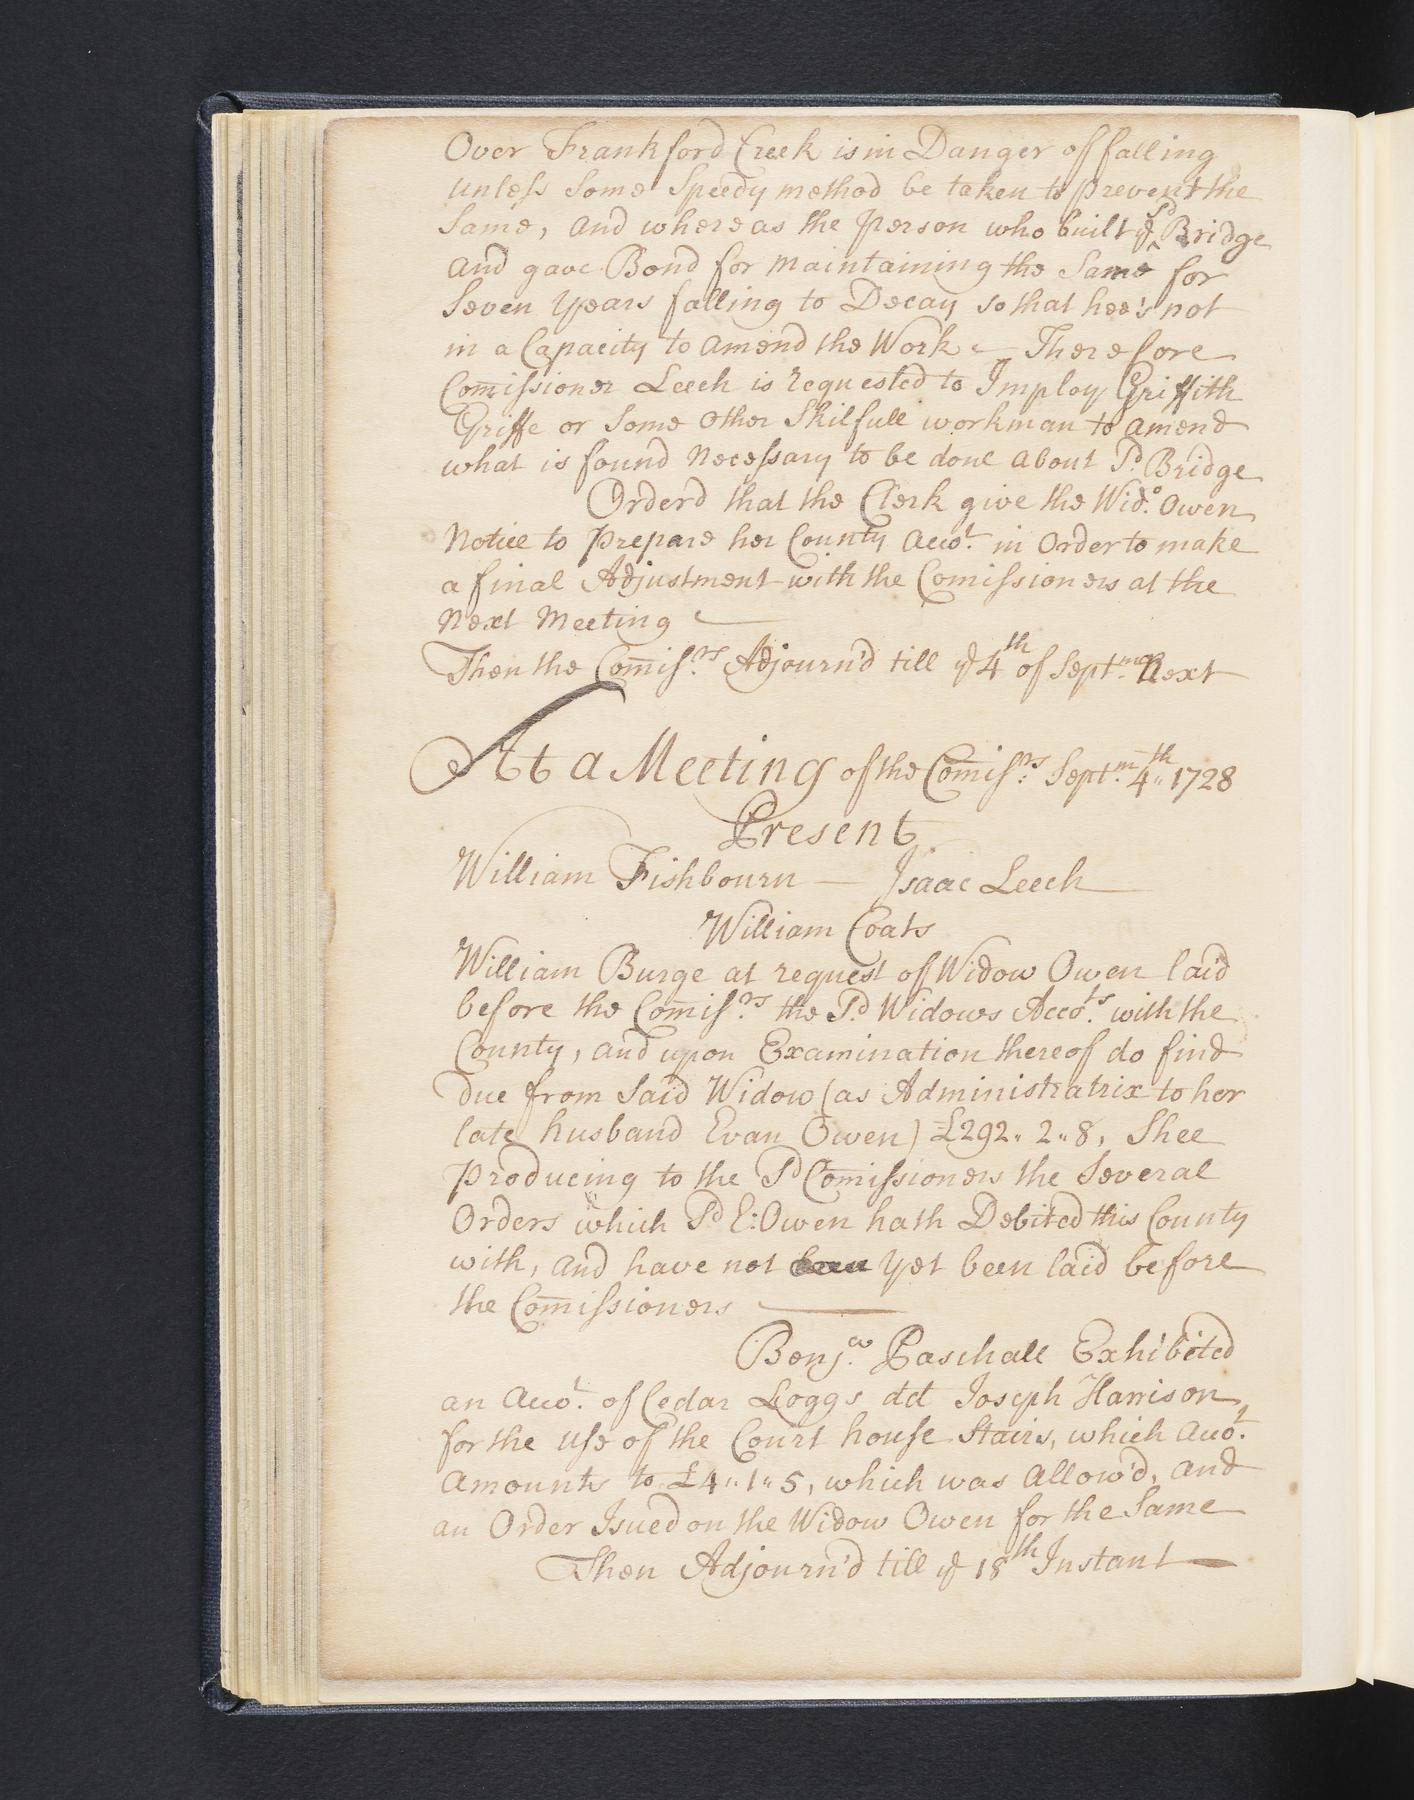 Over Frankford Creek is in Danger of falling
unless Some Speedy method be taken to prevent the
Same, and whereas the person who built ye Sd Bridge
and gave Bond for maintaining the Same for
Seven Years falling to Decay so that hee's not
in a Capacity to amend the Work — Therefore
Com̄issioner Leech is requested to Imploy Griffith
Griffe or Some other Skilfull workman to amend
what is found Necessary to be done about Sd. Bridge
Orderd that the Clerk give the Wido. Owen
Notice to prepare her County Accot. in Order to make
a final Adjustment with the Comissioners at the
Next Meeting —
Then the Com̄isrs. Adjourn'd till ye 4th of Septmr. Next
At a Meeting of the Com̄isrs. Septm. 4th 1728
Present
William Fishbourn — Isaac Leech
William Coats
William Burge at request of Widow Owen laid
before the Com̄isrs. the Sd. Widows Accots. with the
County, and upon Examination thereof do find
due from Said Widow (as Administratrix to her
late husband Evan Owen) £292„ 2„ 8, Shee
producing to the Sd Com̄issioners the Several
Orders which Sd E: Owen hath Debited this County
with, and have not yet been laid before
the Com̄issioners —
Benja. Paschall Exhibited
an Accot. of Cedar Loggs dd Joseph Harrison
for the use of the Court house Stairs, which Accot.
amounts to £4„ 1„ 5, which was Allow'd, and
an Order Isued on the Widow Owen for the Same
Then Adjourn'd till ye 18th Instant —